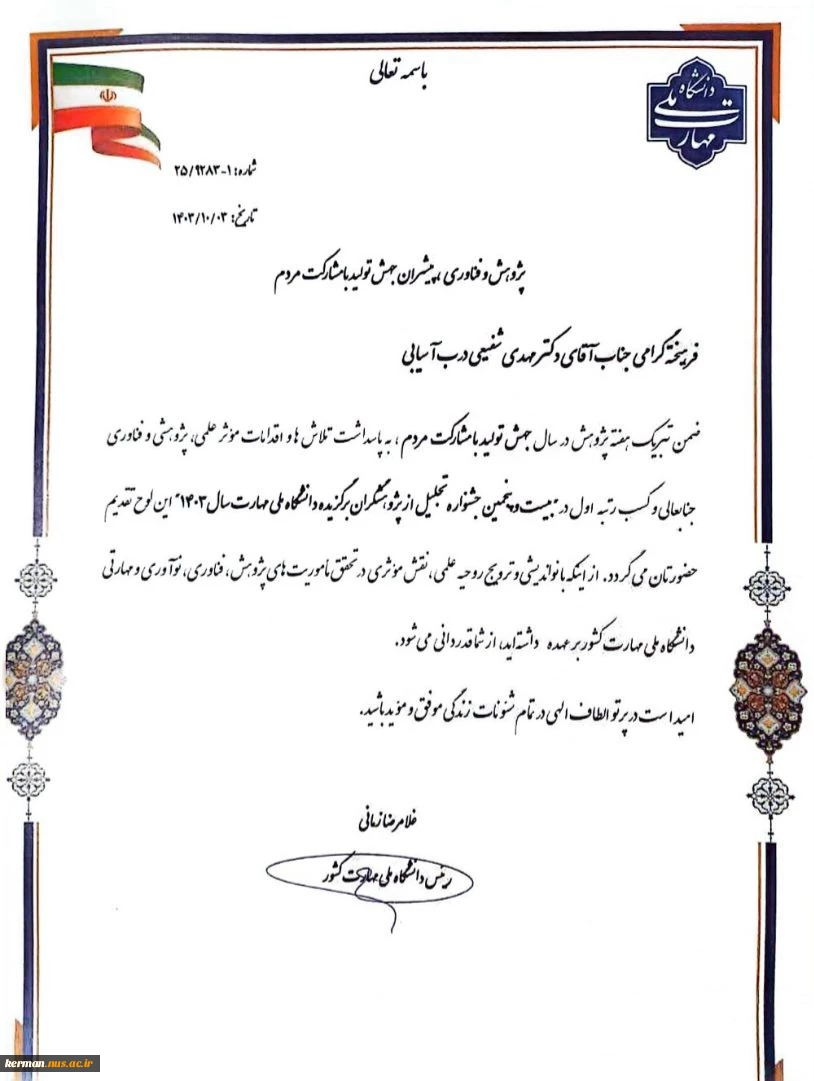 باسمه تعالی
دانشگاه
ملی
مهارت
شماره: ۲۵/۹۲۸۳-۱
تاریخ: ۱۴۰۳/۱۰/۰۳
پژوهش و فناوری، پیشران جهش تولید با مشارکت مردم
فرهیخته گرامی جناب آقای دکتر مهدی شفیعی درب آسیابی
ضمن تبریک هفته پژوهش در سال جهش تولید با مشارکت مردم، به پاسداشت تلاش ها و اقدامات مؤثر علمی، پژوهشی و فناوری
جنابعالی و کسب رتبه اول در "بیست و پنجمین جشنواره تجلیل از پژوهشگران برگزیده دانشگاه ملی مهارت سال ۱۴۰۳" این لوح تقدیم
حضورتان می گردد. از اینکه با نواندیشی و ترویج روحیه علمی، نقش مؤثری در تحقق مأموریت های پژوهش، فناوری، نوآوری و مهارتی
دانشگاه ملی مهارت کشور بر عهده داشته اید، از شما قدردانی می شود.
امید است در پرتو الطاف الهی در تمام شئونات زندگی موفق و مؤید باشید.
غلامرضا زمانی
رئیس دانشگاه ملی مهارت کشور
kerman.nus.ac.ir